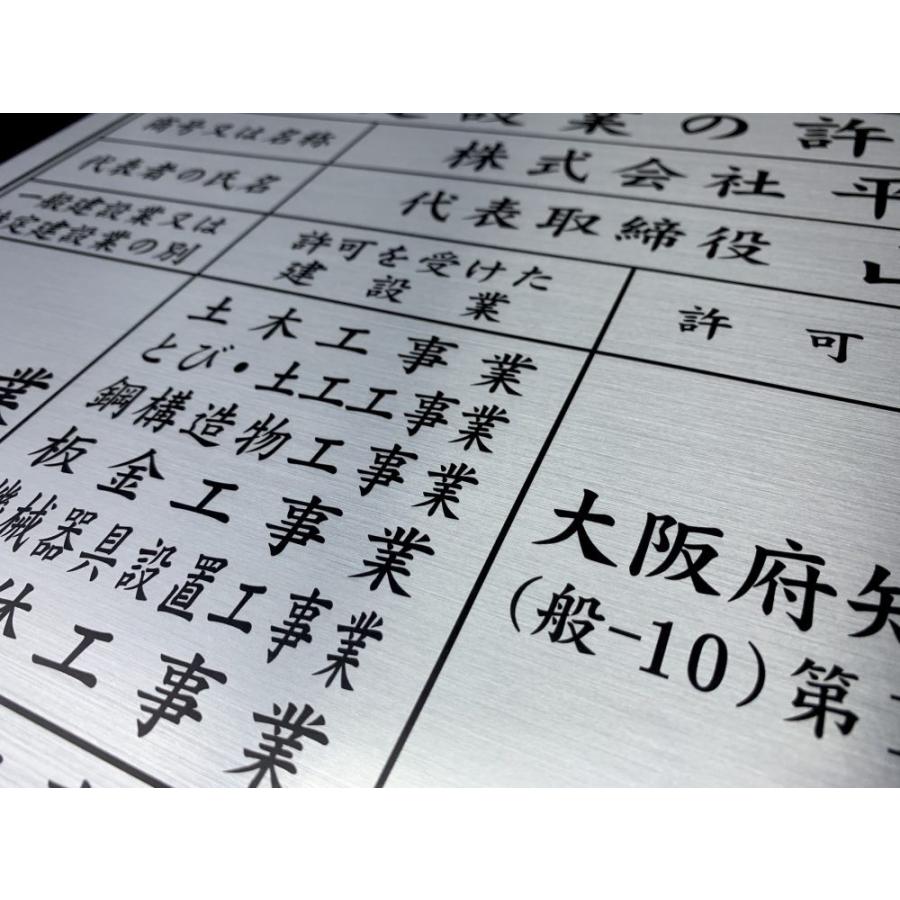 設業の許
商号又は名称
株式会社平
代表者の氏名
代表取締役 山
一般建設業又は
特定建設業の別
許可を受けた
建設業
許可
土木工事業
とび・土工工事業
鋼構造物工事業
板金工事業
機械器具設置工事業
工事業
業
大阪府知
(般-10)第